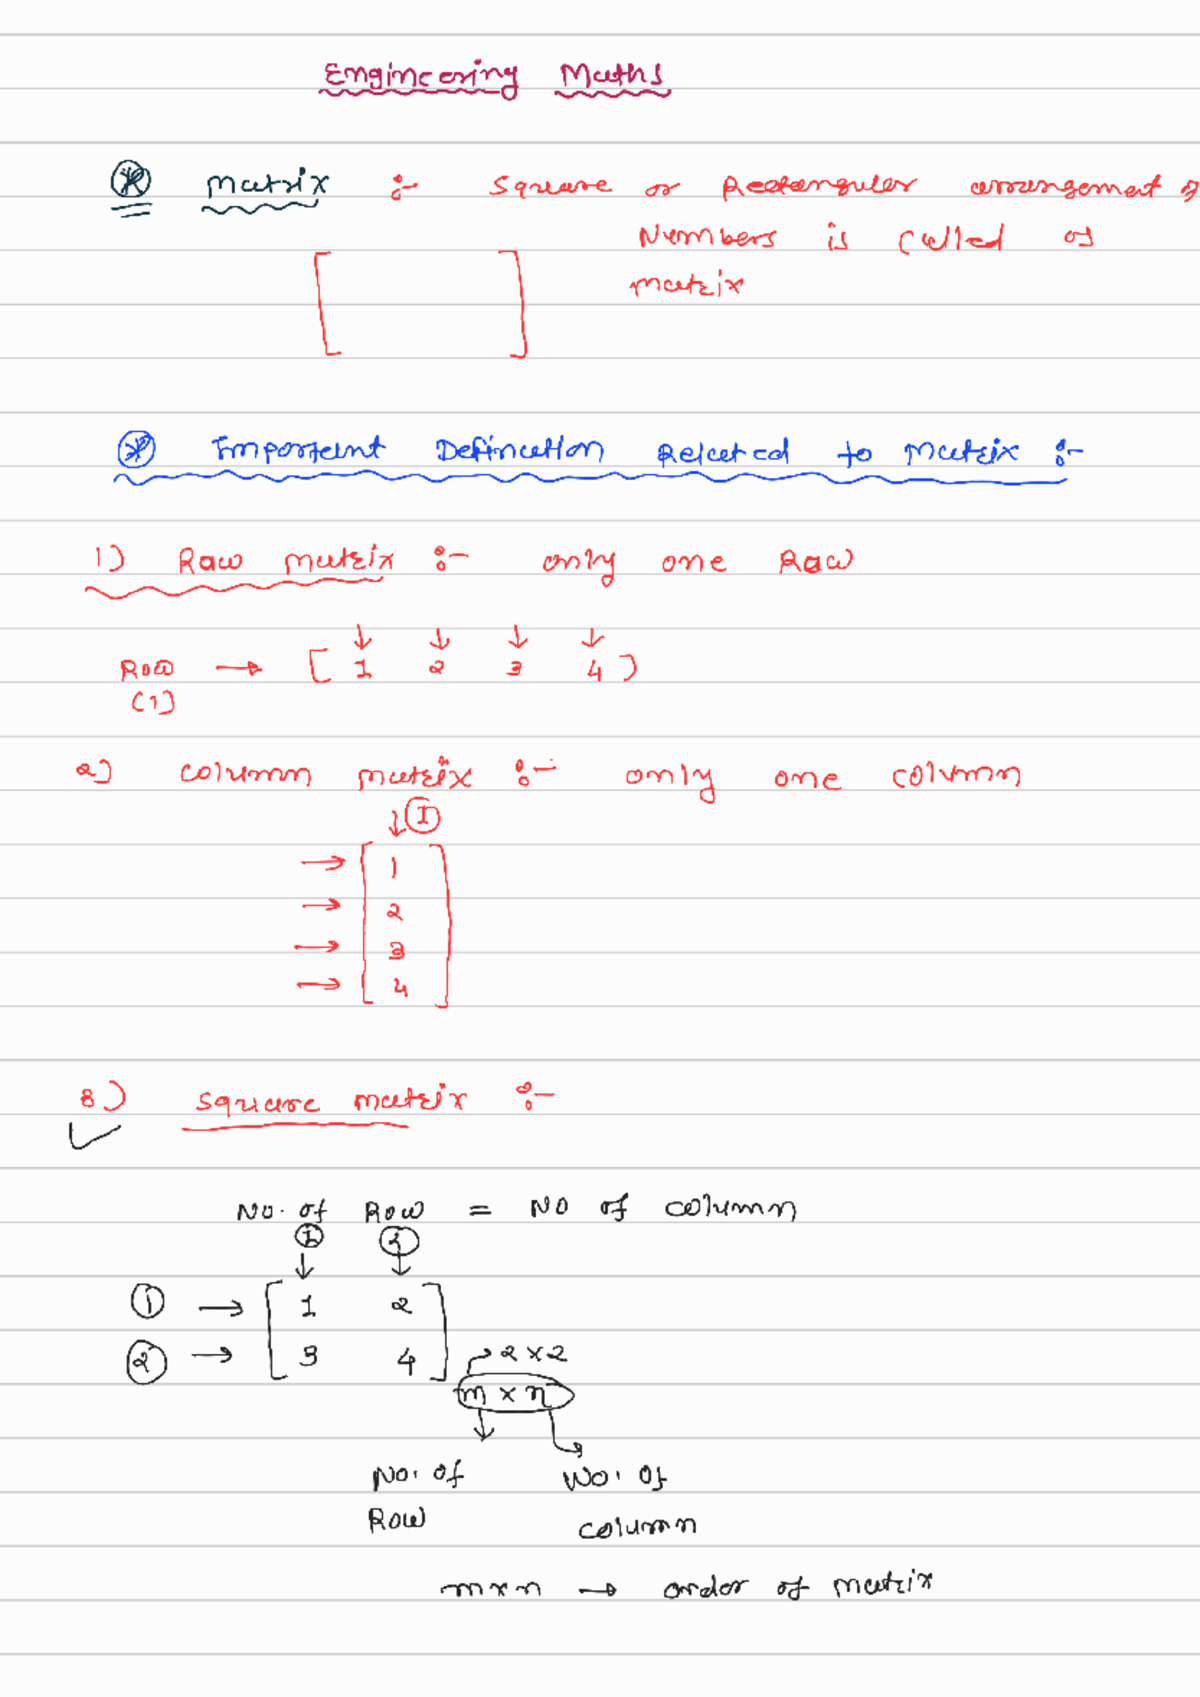 Engineering Maths
* Matrix :- Square or Rectangular arrangement of
Numbers is called of
matrix
[ ]
* Important Defination Related to matrix :-
1) Raw matrix :- only one Raw
↓ ↓ ↓ ↓
Row → [ 1 2 3 4 )
(1)
2) column matrix :- only one column
↓ 1
→ 1
→ 2
→ 3
→ 4
3) square matrix :-
No. of Row = No of column
1 2
↓ ↓
1 → [ 1 2 ]
2 → [ 3 4 ] → 2 x 2
m x n
No. of No. of
Row column
m x n → order of matrix